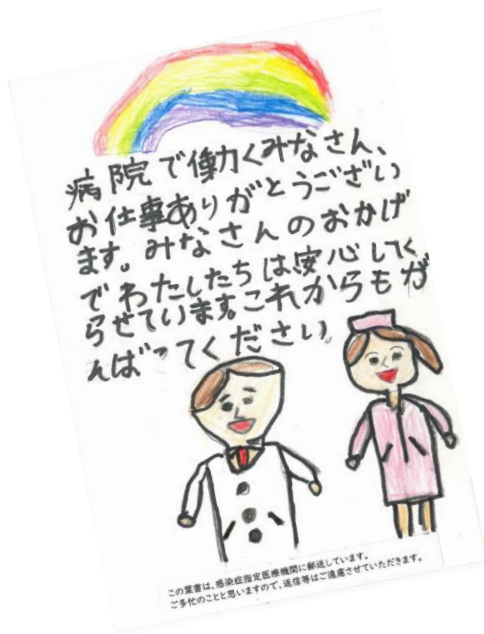 病院で働くみなさん、
お仕事ありがとうござい
ます。みなさんのおかげ
でわたしたちは安心してく
らせています。これからもが
んばってください。
この葉書は、感染症指定医療機関に郵送しています。
ご多忙のことと思いますので、返信等はご遠慮させていただきます。